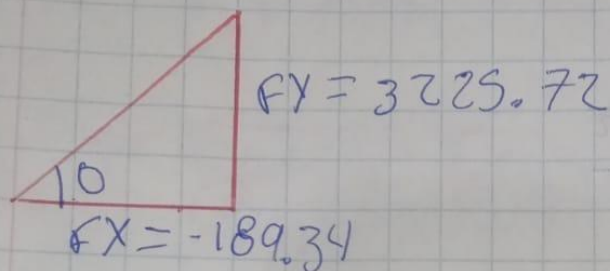 FY = 3225.72
θ
FX = -189.34